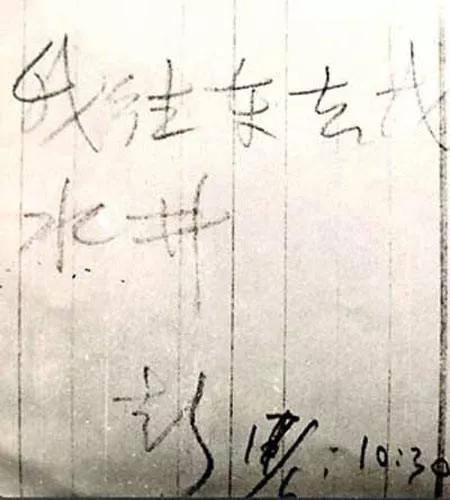 我往东去找
水井
彭 /6: 10:30